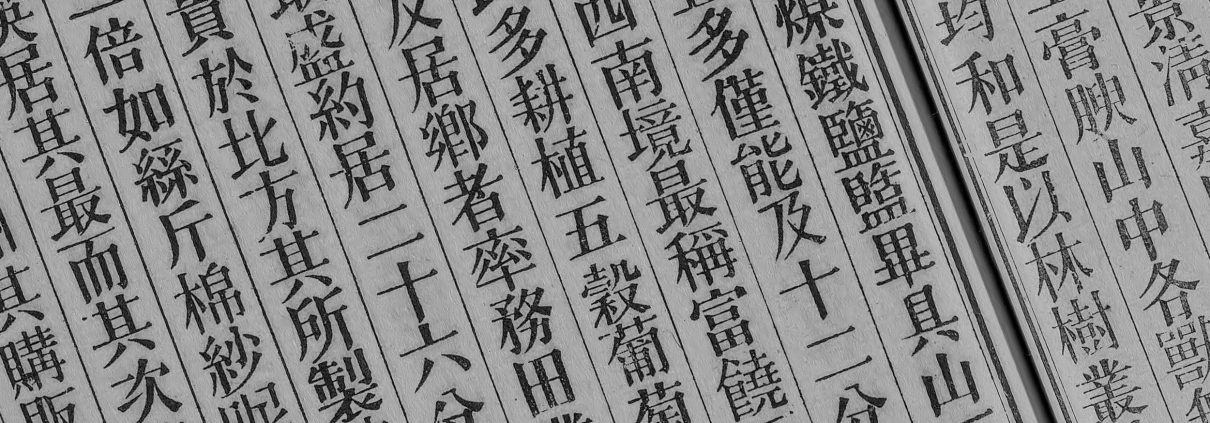 景淸嘉
膏腴山中各獸
均和是以林樹叢
煤鐵鹽鹵畢具山
多僅能及十二分
西南境最稱富饒
多耕植五穀葡萄
反居鄉者率務田
盛約居二十六分
賣於比方其所製
一倍如絲斤棉紗呢
居其最而其次
其購販